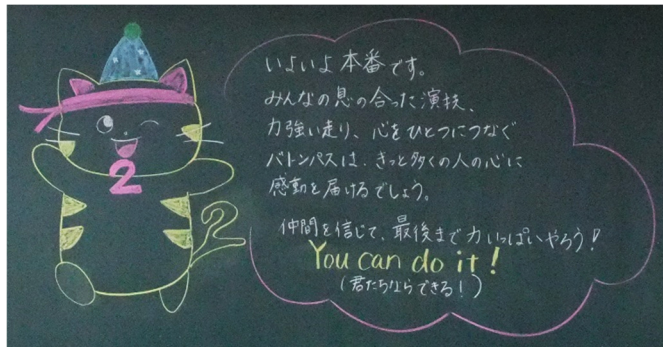 いよいよ本番です。
みんなの息の合った演技、
力強い走り、心をひとつにつなぐ
バトンパスは、きっと多くの人の心に
感動を届けるでしょう。
仲間を信じて、最後まで力いっぱいやろう!
You can do it!
(君たちならできる!)
2
2